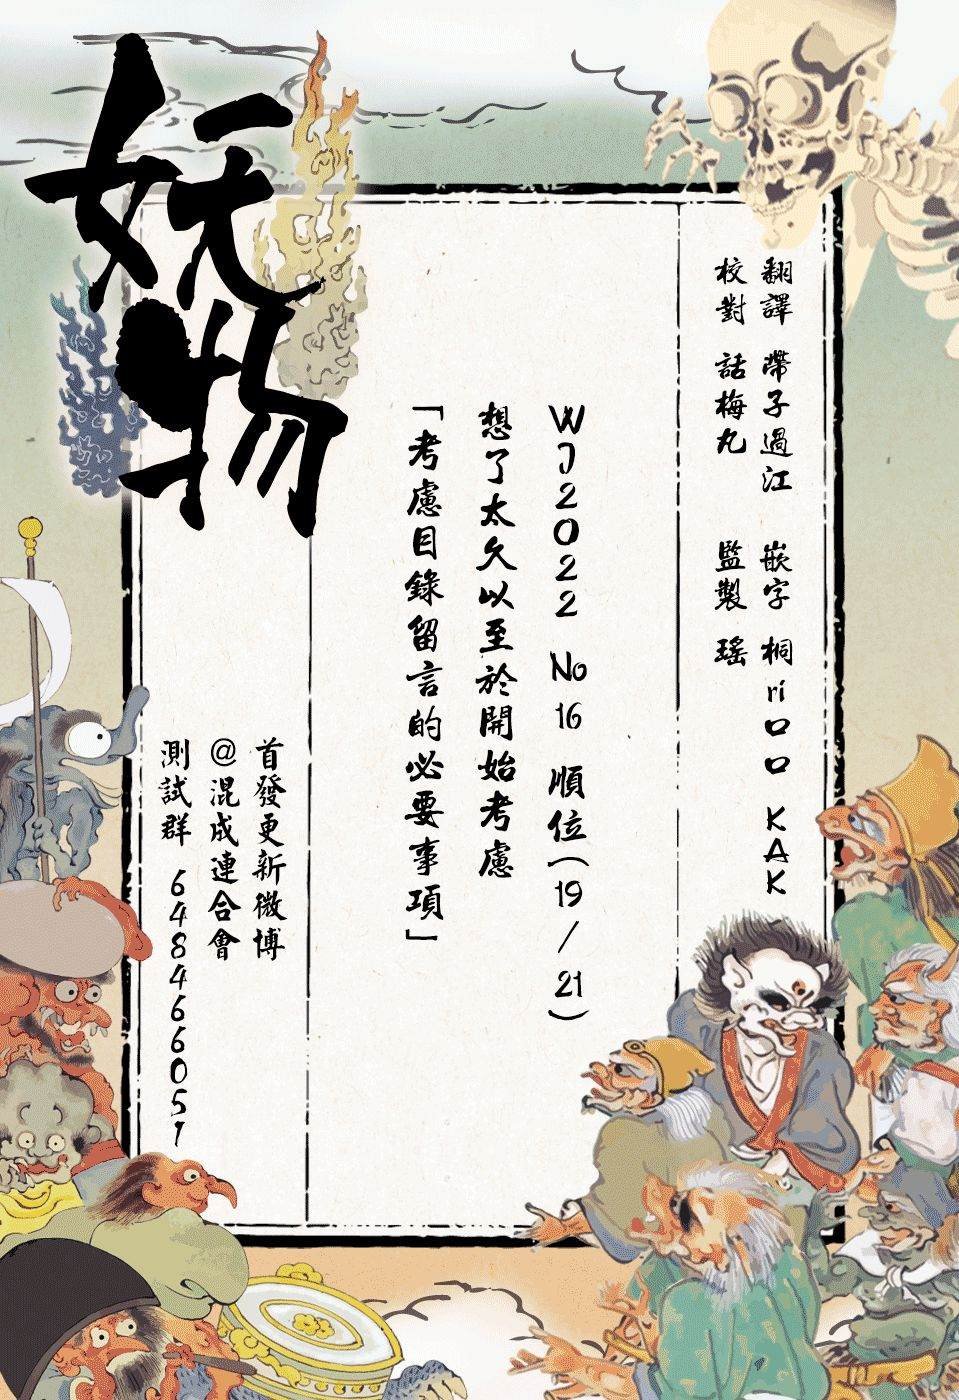 翻譯 帶子過江 嵌字 桐ri口口 KAK
校對 話梅丸 監製 瑤
WJ2022 No16 順位(19/21)
想了太久以至於開始考慮
「考慮目錄留言的必要事項」
妖物
首發更新微博
@混成連合會
測試群 648466051